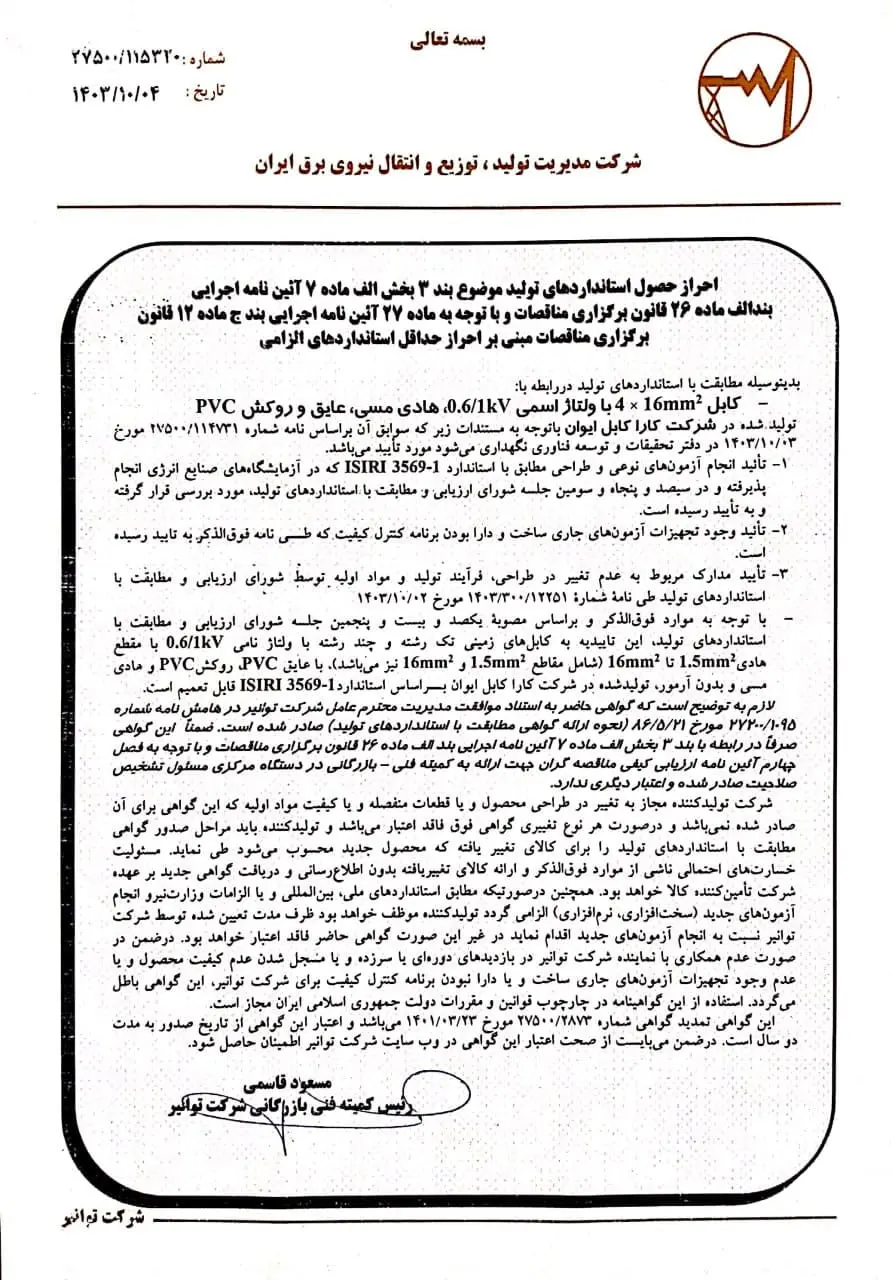 بسمه تعالی
شماره : ۲۷۵۰۰/۱۱۵۳۲۰
تاریخ : ۱۴۰۳/۱۰/۰۴
شرکت مدیریت تولید ، توزیع و انتقال نیروی برق ایران
احراز حصول استانداردهای تولید موضوع بند ۳ بخش الف ماده ۷ آئین نامه اجرایی
بندالف ماده ۲۶ قانون برگزاری مناقصات و با توجه به ماده ۲۷ آئین نامه اجرایی بند ج ماده ۱۲ قانون
برگزاری مناقصات مبنی بر احراز حداقل استانداردهای الزامی
بدینوسیله مطابقت با استانداردهای تولید دررابطه با:
– کابل 4 × 16mm² با ولتاژ اسمی 0.6/1kV، هادی مسی، عایق و روکش PVC
تولید شده در شرکت کارا کابل ایوان باتوجه به مستندات زیر که سوابق آن براساس نامه شماره ۲۷۵۰۰/۱۱۴۷۳۱ مورخ
۱۴۰۳/۱۰/۰۳ در دفتر تحقیقات و توسعه فناوری نگهداری می‌شود مورد تأیید می‌باشد.
۱- تأئید انجام آزمون‌های نوعی و طراحی مطابق با استاندارد ISIRI 3569-1 که در آزمایشگاه‌های صنایع انرژی انجام
پذیرفته و در سیصد و پنجاه و سومین جلسه شورای ارزیابی و مطابقت با استانداردهای تولید، مورد بررسی قرار گرفته
و به تأیید رسیده است.
۲- تأئید وجود تجهیزات آزمون‌های جاری ساخت و دارا بودن برنامه کنترل کیفیت که طی نامه فوق‌الذکر به تایید رسیده
است.
۳- تأیید مدارک مربوط به عدم تغییر در طراحی، فرآیند تولید و مواد اولیه توسط شورای ارزیابی و مطابقت با
استانداردهای تولید طی نامۀ شمارۀ ۱۴۰۳/۳۰۰/۱۲۲۵۱ مورخ ۱۴۰۳/۱۰/۰۲
– با توجه به موارد فوق‌الذکر و براساس مصوبۀ یکصد و بیست و پنجمین جلسه شورای ارزیابی و مطابقت با
استانداردهای تولید، این تاییدیه به کابل‌های زمینی تک رشته و چند رشته با ولتاژ نامی 0.6/1kV با مقطع
هادی 1.5mm² تا 16mm² (شامل مقاطع 1.5mm² و 16mm² نیز می‌باشد)، با عایق PVC، روکش PVC و هادی
مسی و بدون آرمور، تولیدشده در شرکت کارا کابل ایوان براساس استاندارد ISIRI 3569-1 قابل تعمیم است.
لازم به توضیح است که گواهی حاضر به استناد موافقت مدیریت محترم عامل شرکت توانیر در هامش نامه شماره
۲۷۲۰۰/۱۰۹۵ مورخ ۸۶/۵/۲۱ (نحوه ارائه گواهی مطابقت با استانداردهای تولید) صادر شده است. ضمناً این گواهی
صرفاً در رابطه با بند ۳ بخش الف ماده ۷ آئین نامه اجرایی بند الف ماده ۲۶ قانون برگزاری مناقصات و با توجه به فصل
چهارم آئین نامه ارزیابی کیفی مناقصه گران جهت ارائه به کمیته فنی – بازرگانی در دستگاه مرکزی مسئول تشخیص
صلاحیت صادر شده و اعتبار دیگری ندارد.
شرکت تولیدکننده مجاز به تغییر در طراحی محصول و یا قطعات منفصله و یا کیفیت مواد اولیه که این گواهی برای آن
صادر شده نمی‌باشد و درصورت هر نوع تغییری گواهی فوق فاقد اعتبار می‌باشد و تولیدکننده باید مراحل صدور گواهی
مطابقت با استانداردهای تولید را برای کالای تغییر یافته که محصول جدید محسوب می‌شود طی نماید. مسئولیت
خسارت‌های احتمالی ناشی از موارد فوق‌الذکر و ارائه کالای تغییریافته بدون اطلاع‌رسانی و دریافت گواهی جدید بر عهده
شرکت تأمین‌کننده کالا خواهد بود. همچنین درصورتیکه مطابق استانداردهای ملی، بین‌المللی و یا الزامات وزارت‌نیرو انجام
آزمون‌های جدید (سخت‌افزاری، نرم‌افزاری) الزامی گردد تولیدکننده موظف خواهد بود ظرف مدت تعیین شده توسط شرکت
توانیر نسبت به انجام آزمون‌های جدید اقدام نماید در غیر این صورت گواهی حاضر فاقد اعتبار خواهد بود. درضمن در
صورت عدم همکاری با نماینده شرکت توانیر در بازدیدهای دوره‌ای یا سرزده و یا مسجل شدن عدم کیفیت محصول و یا
عدم وجود تجهیزات آزمون‌های جاری ساخت و یا دارا نبودن برنامه کنترل کیفیت برای شرکت توانیر، این گواهی باطل
می‌گردد. استفاده از این گواهینامه در چارچوب قوانین و مقررات دولت جمهوری اسلامی ایران مجاز است.
این گواهی تمدید گواهی شماره ۲۷۵۰۰/۲۸۷۳ مورخ ۱۴۰۱/۰۳/۲۳ می‌باشد و اعتبار این گواهی از تاریخ صدور به مدت
دو سال است. درضمن می‌بایست از صحت اعتبار این گواهی در وب سایت شرکت توانیر اطمینان حاصل شود.
مسعود قاسمی
رئیس کمیته فنی بازرگانی شرکت توانیر
شرکت توانیر